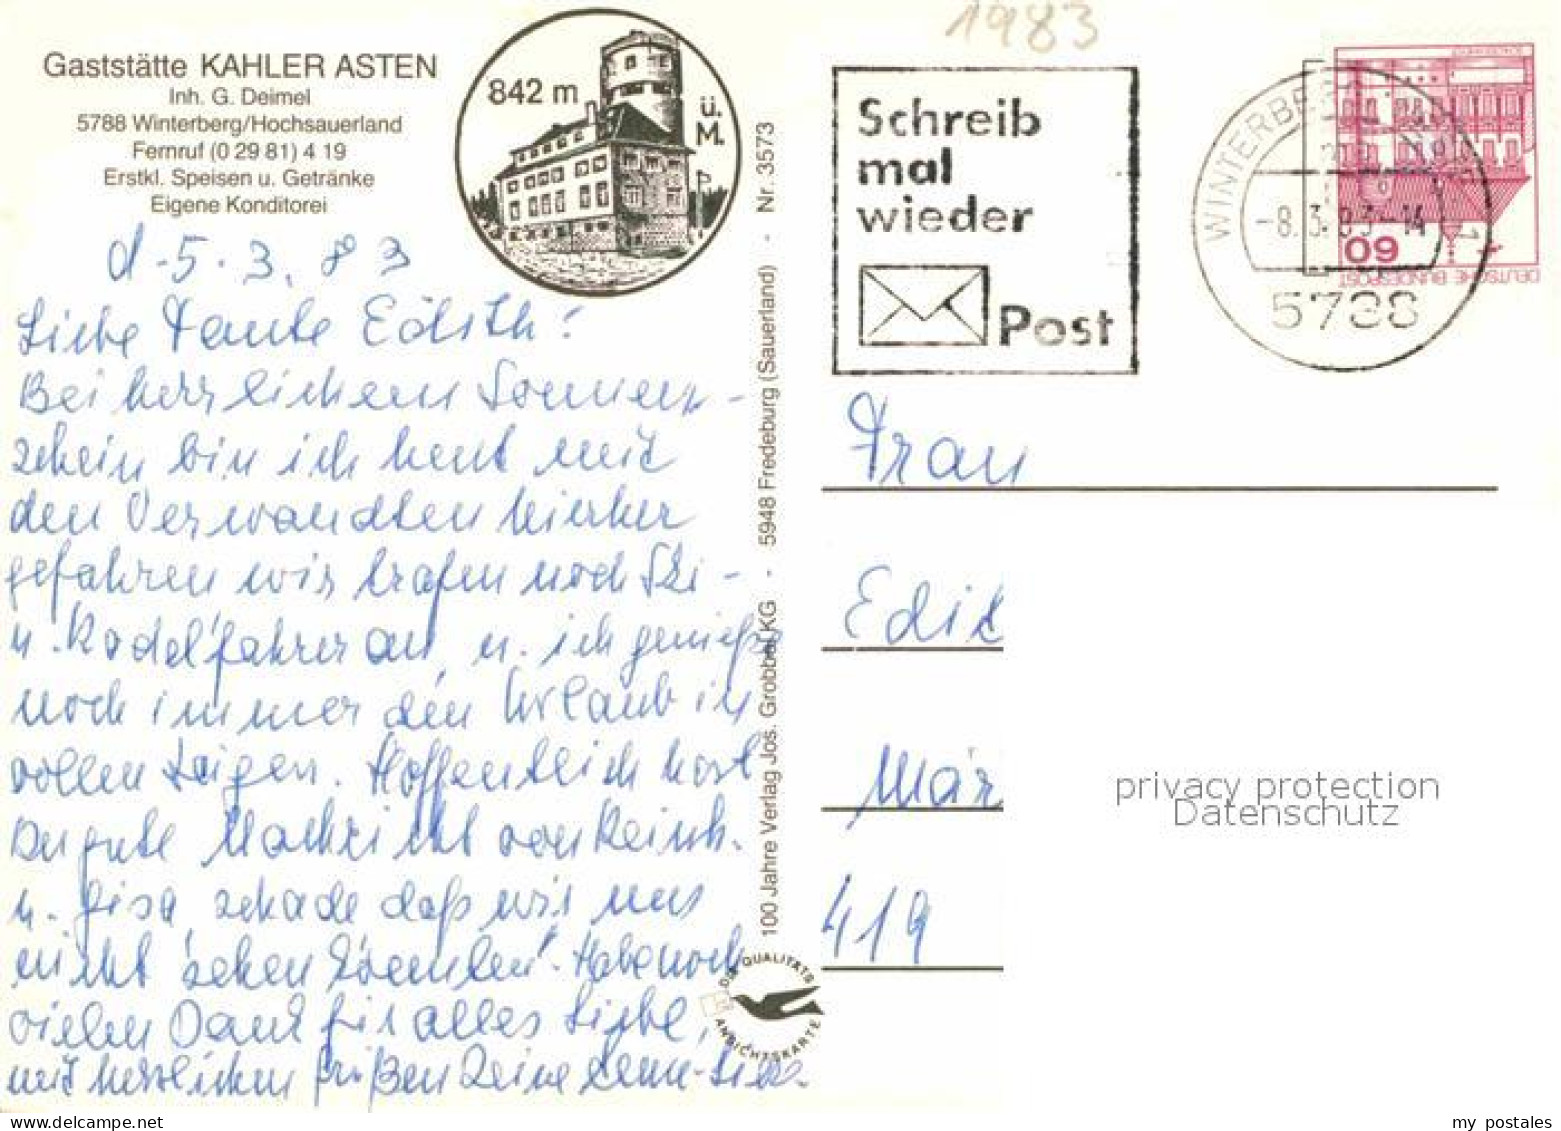 1983
Gaststätte KAHLER ASTEN
Inh. G. Deimel
5788 Winterberg/Hochsauerland
Fernruf (0 29 81) 4 19
Erstkl. Speisen u. Getränke
Eigene Konditorei
842 m
ü.
M.
d. 5. 3. 83
Liebe Tante Edith!
Bei herrlichem Sonnen-
schein bin ich heut mit
den Verwandten hierher
gefahren wir trafen noch Ski-
u. Rodelfahrer an, u. ich genieße
noch immer den Urlaub in
vollen Zügen. Hoffentlich hast
Du gute Nachricht von Reinh.
u. Gisa, schade daß wir uns
nicht sehen konnten. Habe noch
vielen Dank für alles Liebe,
mit herzlichen Grüßen Deine
100 Jahre Verlag Jos. Grobbel KG · 5948 Fredeburg (Sauerland) · Nr. 3573
DIE QUALITÄTS
ANSICHTSKARTE
Schreib
mal
wieder
Post
WINTERBERG 1
-8.3.83-14
5788
60
DEUTSCHE BUNDESPOST
Frau
Edit
Mär
419
privacy protection
Datenschutz
my postales